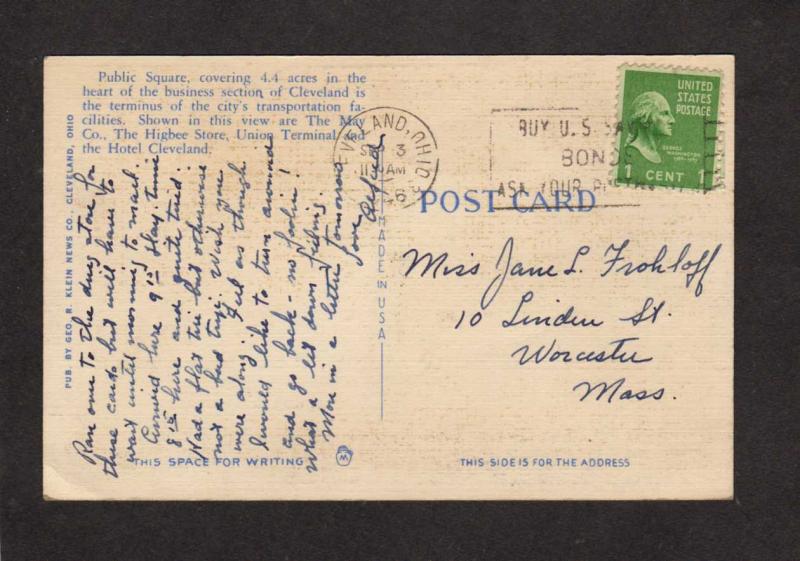 Public Square, covering 4.4 acres in the
heart of the business section of Cleveland is
the terminus of the city's transportation fa-
cilities. Shown in this view are The May
Co., The Higbee Store, Union Terminal and
the Hotel Cleveland.
PUB. BY GEO. R. KLEIN NEWS CO., CLEVELAND, OHIO
Ran over to the drug store for
these cards but will have to
wait until morning to mail.
Arrived here 9 15 Slay. time
8 15 here and quite tired.
Had a flat tire but otherwise
not a bad trip. Wish you
were along. Feel as though
I would like to turn around
and go back - no foolin!
What a let down feeling.
More in a letter tomorrow
Love
Alfred
THIS SPACE FOR WRITING
MADE IN USA
CLEVELAND, OHIO
3
AM
BUY U.S.
BONDS
ASK YOUR
UNITED
STATES
POSTAGE
GEORGE
WASHINGTON
1 CENT 1
POST CARD
Miss Jane L. Frohloff
10 Linden St.
Worcester
Mass.
THIS SIDE IS FOR THE ADDRESS